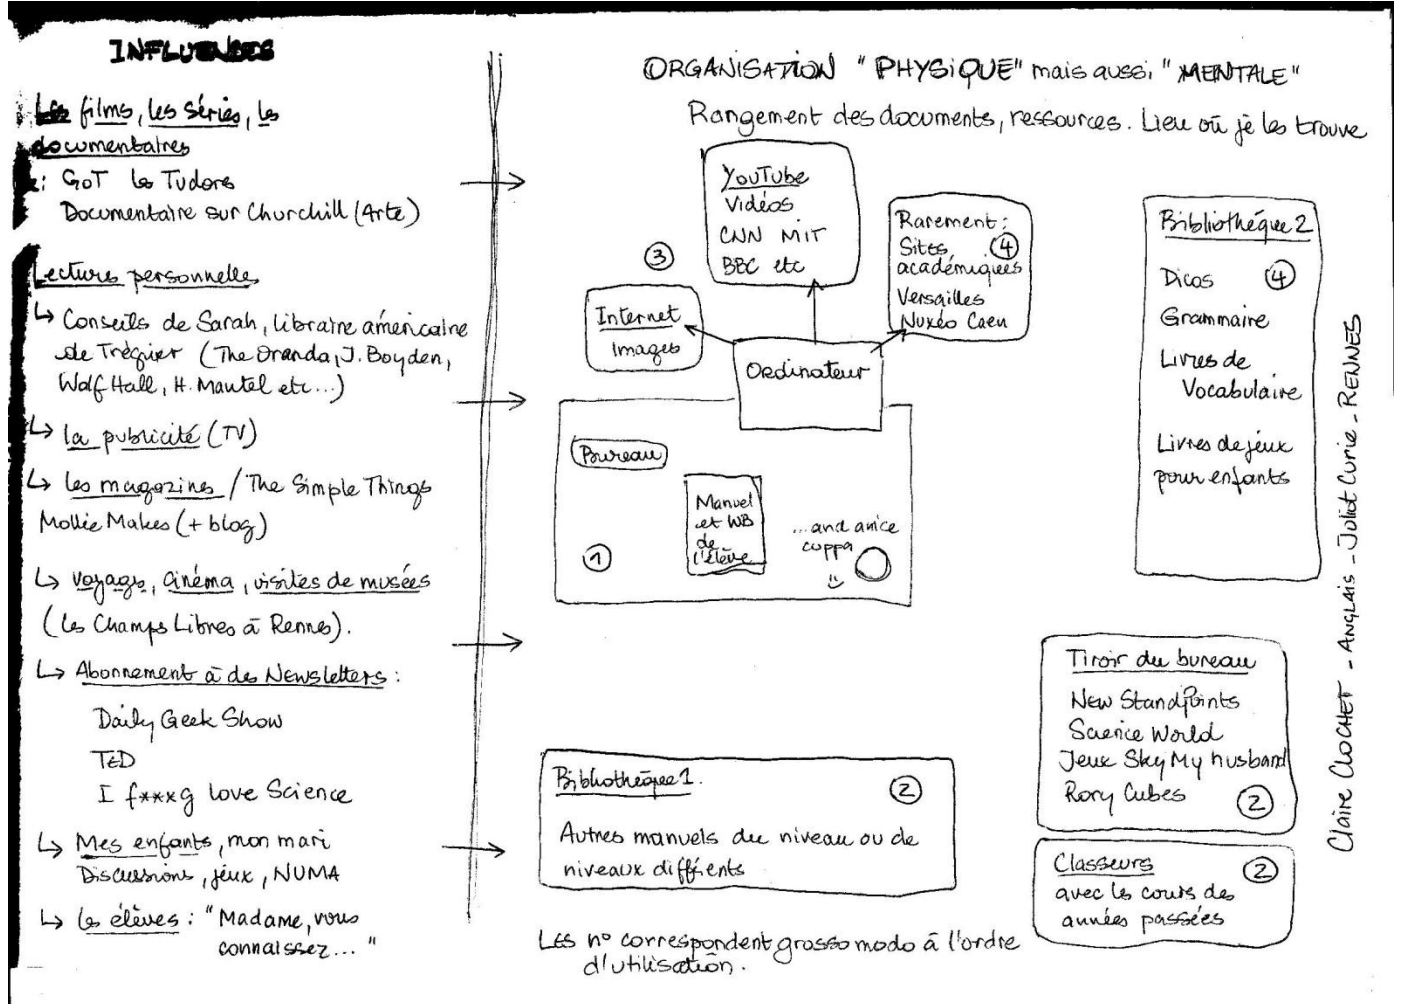 INFLUENCES
Les films, les séries, les
documentaires
: GoT les Tudors
Documentaire sur Churchill (Arte)
Lectures personnelles
↳ Conseils de Sarah, libraire américaine
de Tréguier (The Oranda, J. Boyden,
Wolf Hall, H. Mantel etc...)
↳ la publicité (TV)
↳ les magazines / The Simple Things
Mollie Makes (+ blog)
↳ voyages, cinéma, visites de musées
(les Champs Libres à Rennes).
↳ Abonnement à des Newsletters :
Daily Geek Show
TED
I f***g love Science
↳ Mes enfants, mon mari
Discussions, jeux, NUMA
↳ les élèves : "Madame, vous
connaissez... "
ORGANISATION "PHYSIQUE" mais aussi "MENTALE"
Rangement des documents, ressources. Lieu où je les trouve
YouTube
Vidéos
CNN MIT
BBC etc
③
Internet
Images
Rarement :
Sites ④
académiques
Versailles
Nuxéo Caen
Ordinateur
Bureau
①
Manuel
et WB
de
l'élève
...and a nice
cuppa
Bibliothèque 2
Dicos ④
Grammaire
Livres de
Vocabulaire
Livres de jeux
pour enfants
Tiroir du bureau
New Standpoints
Science World
Jeux Sky My husband
Rory Cubes ②
Bibliothèque 1. ②
Autres manuels du niveau ou de
niveaux différents
Classeurs ②
avec les cours des
années passées
Les n° correspondent grosso modo à l'ordre
d'utilisation.
Claire CLOCHET - ANGLAIS - Joliot Curie - RENNES